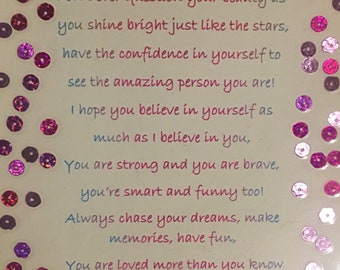 your beauty as
you shine bright just like the stars,
have the confidence in yourself to
see the amazing person you are!
I hope you believe in yourself as
much as I believe in you,
You are strong and you are brave,
you're smart and funny too!
Always chase your dreams, make
memories, have fun,
You are loved more than you know